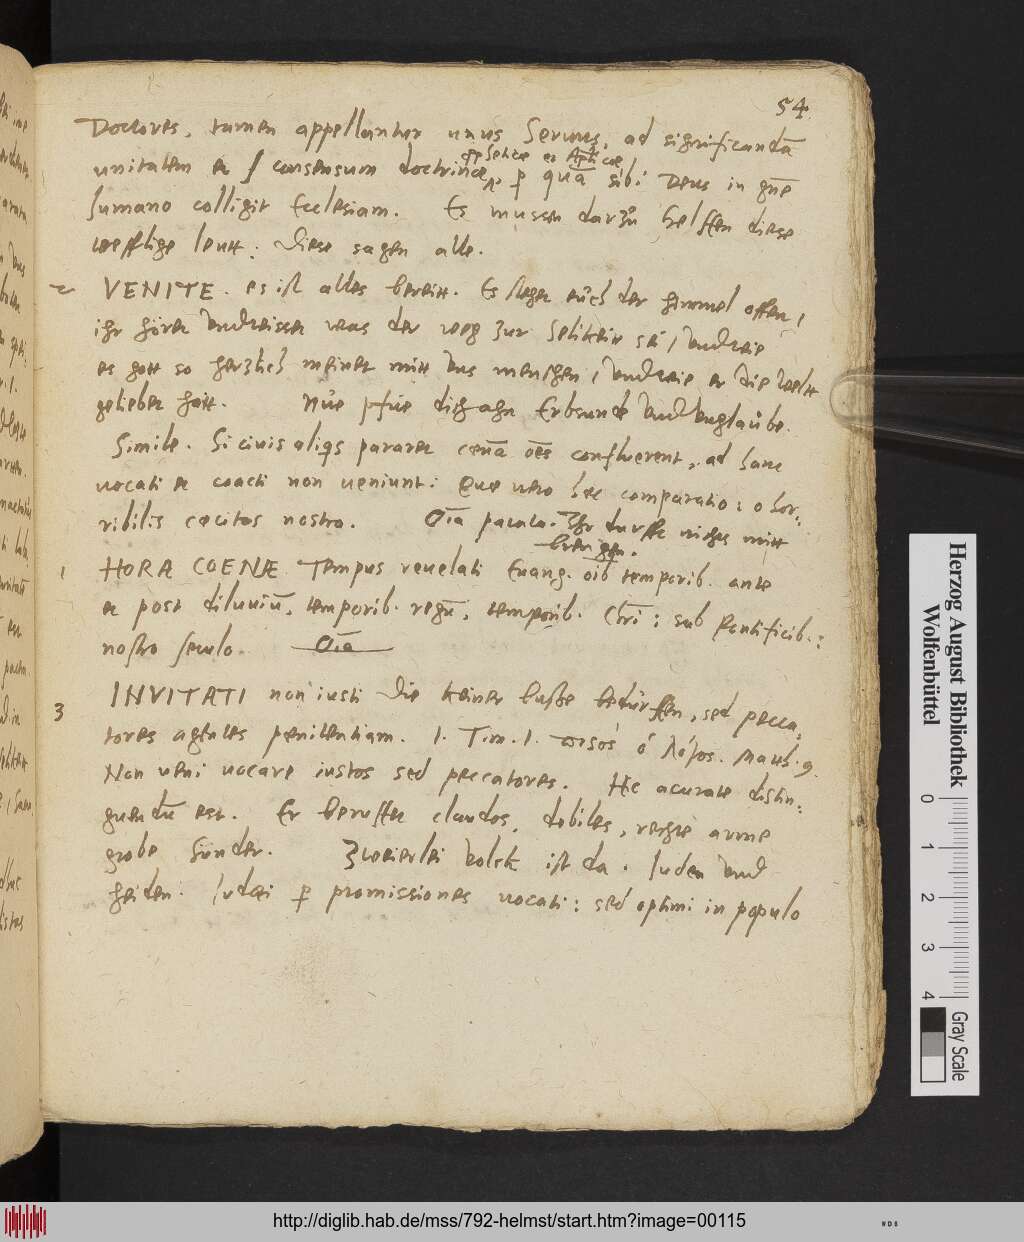 54.
Doctores, tamen appellantur unus Servus, ad significandā
unitatem et consensum doctrinæ, propheticæ et Apticæ, p quā sibi Deus in gn̄e
humano colligit Ecclesiam. Es mussen darzů helffen diese
treffliche leutt. Diese sagen alle.
2 VENITE. es ist alles bereitt. Es stehet eůch der himmel offen,
ihr höret undt wisset was der weg zur Selikeit sei, undt wie
es gott so hertzlich meinet mitt uns menschen, undt wie er die Weltt
geliebet hatt. Nůe pfue dich ahn Erbsunde undt unglaůbe.
Simile. Si civis aliqs pararet cœnā oēs confluerent, ad hanc
vocati et coacti non veniunt: Quæ vero hæc comparatio: o hor-
ribilis cæcitas nostra. Oīa parata. Ihr durfft nichts mitt
bringen.
1 HORÆ COENÆ Tempus revelati Euang. oīb temporib. ante
et post diluviū, temporib. regū, temporib. Chri: sub Pontificib.:
nostro seculo. Oīa
3 INVITATI non iusti die keiner busse bedürffen, sed pecca-
tores agentes pœnitentiam. 1. Tim. 1. πισὸς ὁ λόγος. Matth. 9.
Non veni vocare iustos sed peccatores. Hic acurate distin-
guendū est. Er beruffet claudos, debiles, rechte arme
grobe Sünder. Zweierlei volck ist da. Juden undt
heiden. Iudæi p promissiones vocati: sed optimi in populo
Herzog August Bibliothek
Wolfenbüttel
0 1 2 3 4
Gray Scale
http://diglib.hab.de/mss/792-helmst/start.htm?image=00115